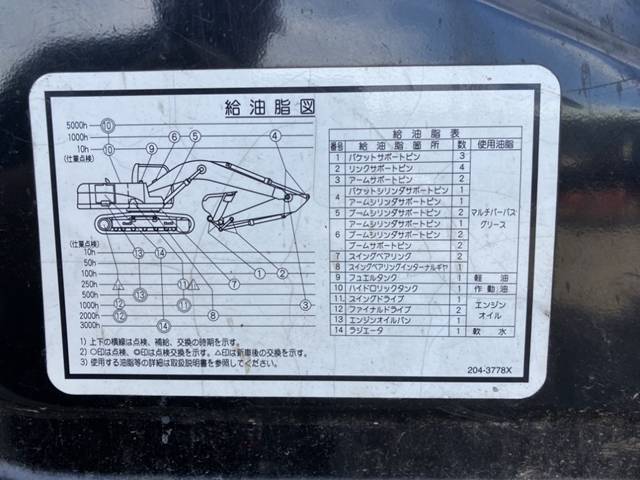 給油脂図
5000h ⑩
1000h ⑥ ⑤ ④
10h
(仕業点検) ⑩ ⑨
(仕業点検)
10h
50h ⑬ ⑭ ① ②
100h
250h ⑪ ⑦
500h ⑬
1000h ⑫ ⑪ ③
2000h ⑫ ⑧
3000h ⑭
給油脂表
番号 給油脂箇所 数 使用油脂
1 バケットサポートピン 3
2 リンクサポートピン 4
3 アームサポートピン 2
4 バケットシリンダサポートピン 1
アームシリンダサポートピン 1
5 ブームシリンダサポートピン 2 マルチパーパスグリース
6 アームシリンダサポートピン 1
ブームシリンダサポートピン 2
ブームサポートピン 2
7 スイングベアリング 2
8 スイングベアリングインターナルギヤ 1
9 フュエルタンク 1 軽油
10 ハイドロリックタンク 1 作動油
11 スイングドライブ 1 エンジンオイル
12 ファイナルドライブ 2
13 エンジンオイルパン 1
14 ラジエータ 1 軟水
1) 上下の横線は点検、補給、交換の時期を示す。
2) ○印は点検、◎印は点検交換を示す。△印は新車後の交換を示す。
3) 使用する油脂等の詳細は取扱説明書を参照してください。
204-3778X